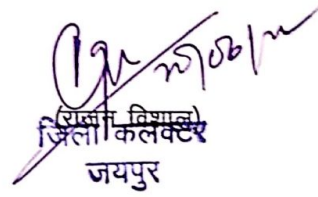 (राजन विशाल)
जिला कलक्टर
जयपुर